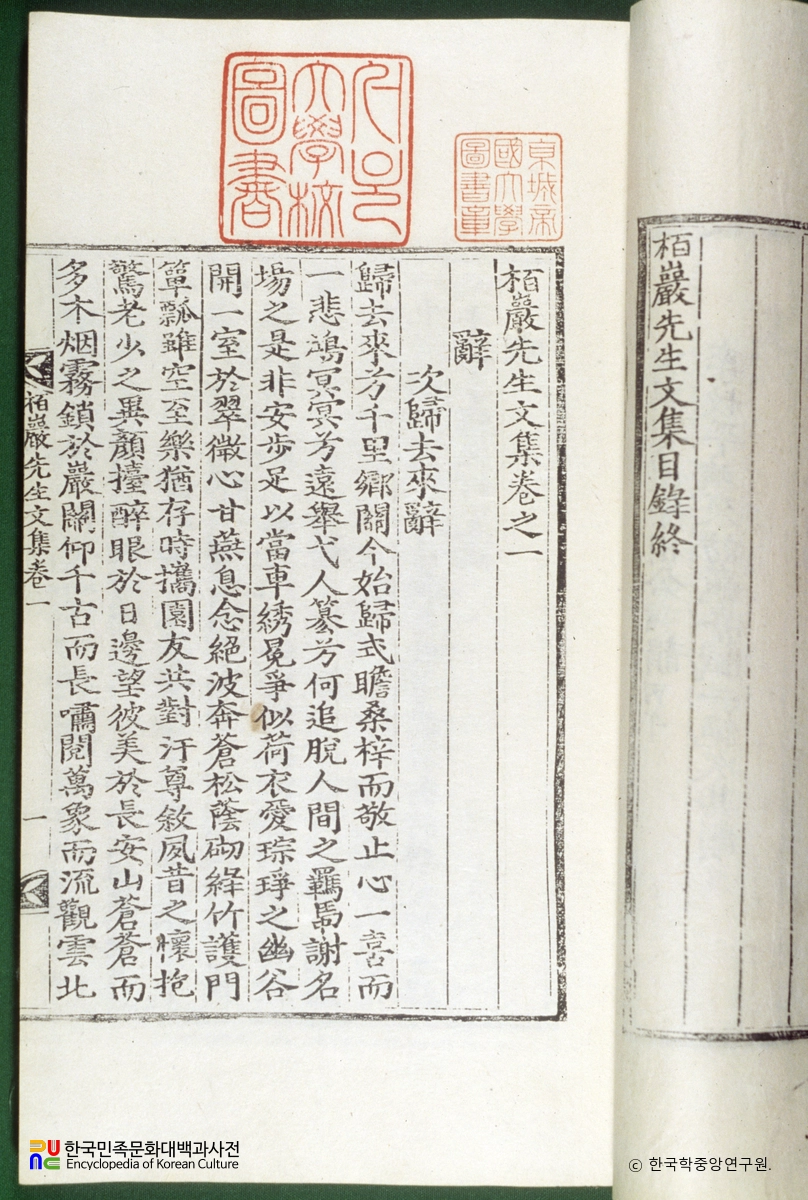 栢巖先生文集目錄終
서울
大學校
圖書
京城帝
國大學
圖書章
栢巖先生文集卷之一
辭
次歸去來辭
歸去來兮千里鄉關今始歸式瞻桑梓而敬止心一喜而
一悲鴻冥冥兮遠舉弋人篡兮何追脫人間之羈馽謝名
場之是非安步足以當車綉冕爭似荷衣愛琮琤之幽谷
開一室於翠微心甘燕息念絕波奔蒼松蔭砌綠竹護門
簞瓢雖空至樂猶存時攜園友共對汙尊敘夙昔之懷抱
驚老少之異顏擡醉眼於日邊望彼美於長安山蒼蒼而
多木烟霧鎖於巖關仰千古而長嘯閱萬象而流觀雲北
栢巖先生文集卷一
一
한국민족문화대백과사전
Encyclopedia of Korean Culture
ⓒ 한국학중앙연구원.